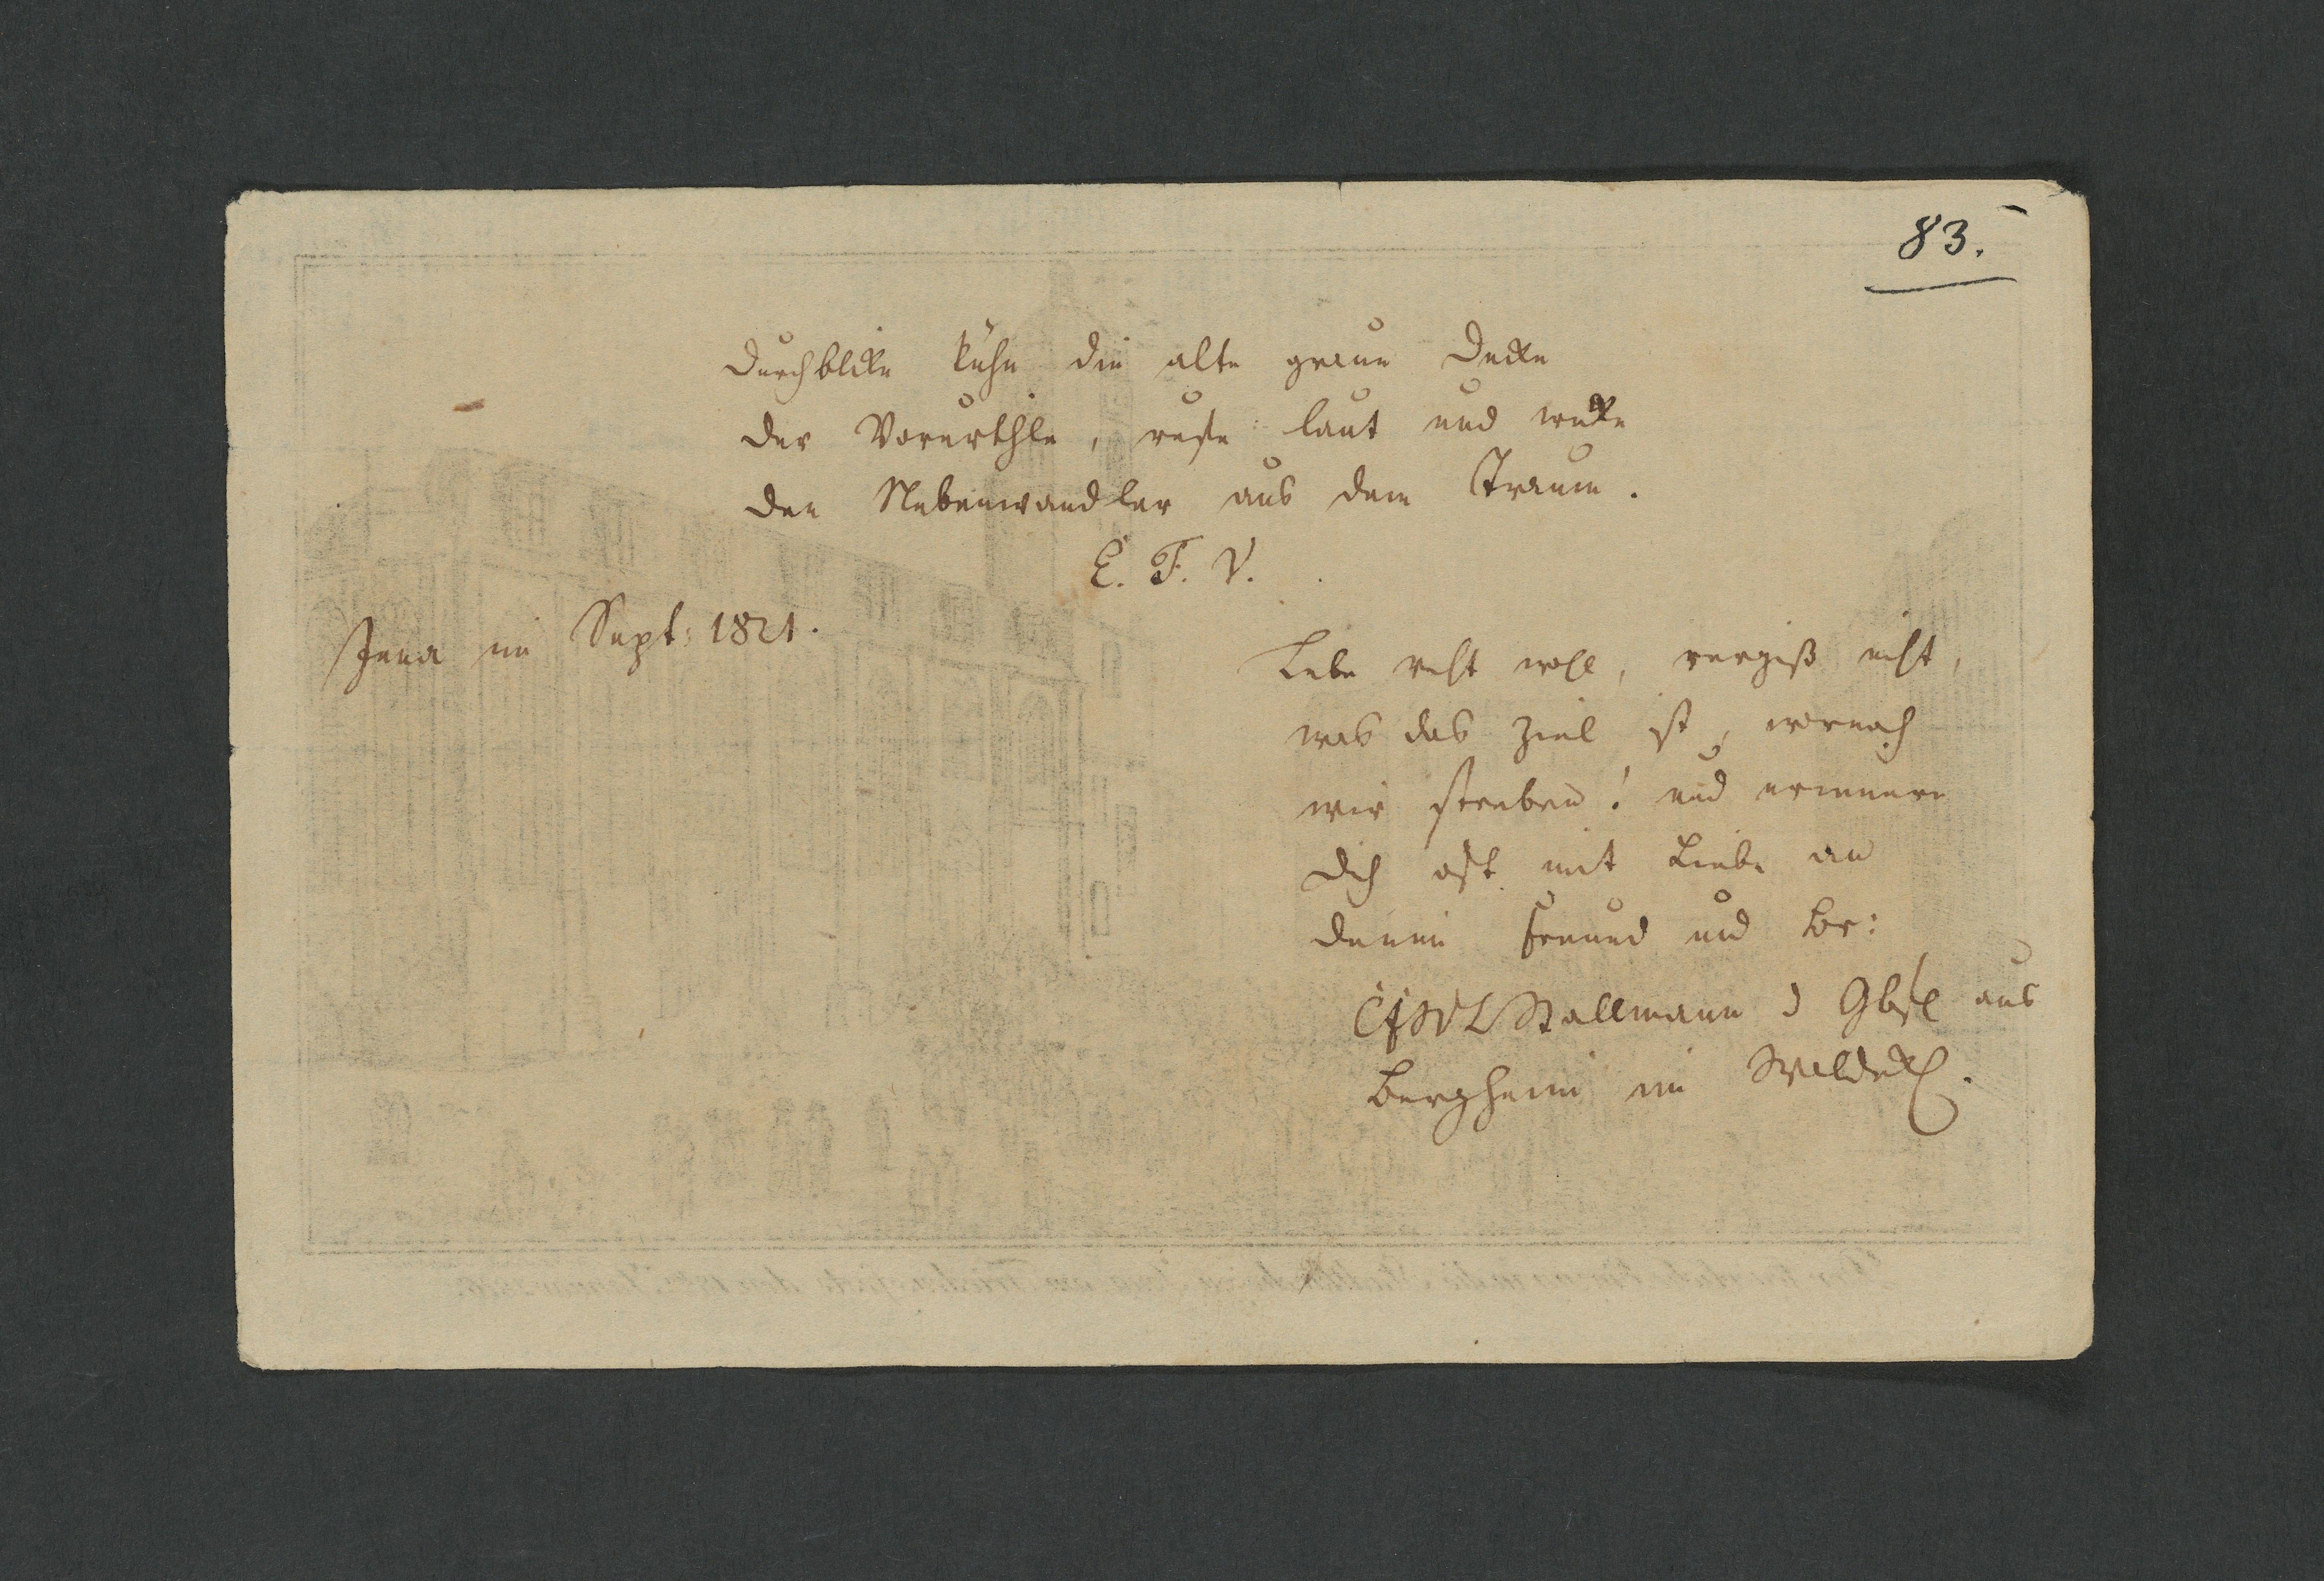 83.
Durchblikke kühn die alte graue Dekke
der Vorurthle, rufe laut und wekke
den Nebenwandler aus dem Traum.
E. F. V.
Jena im Sept: 1821.
Lebe recht wohl, vergiß nicht,
was das Ziel ist, wornach
wir streben! und erinnere
dich oft mit Liebe an
deinen Freund und Br:
Stallmann d aus
Bergheim im Waldek.